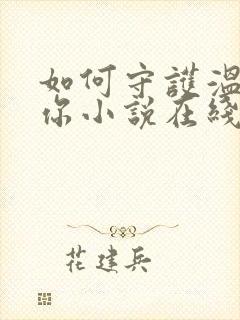 如何守護溫
你小說在綫
花建兵